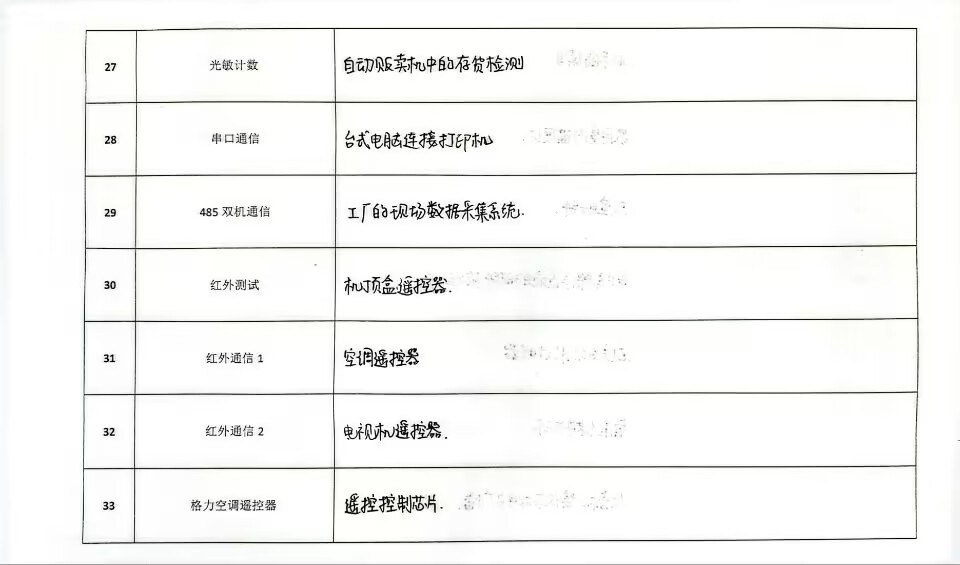 27 光敏计数 自动贩卖机中的存货检测
28 串口通信 台式电脑连接打印机
29 485 双机通信 工厂的现场数据采集系统.
30 红外测试 机顶盒遥控器.
31 红外通信 1 空调遥控器
32 红外通信 2 电视机遥控器.
33 格力空调遥控器 遥控控制芯片.